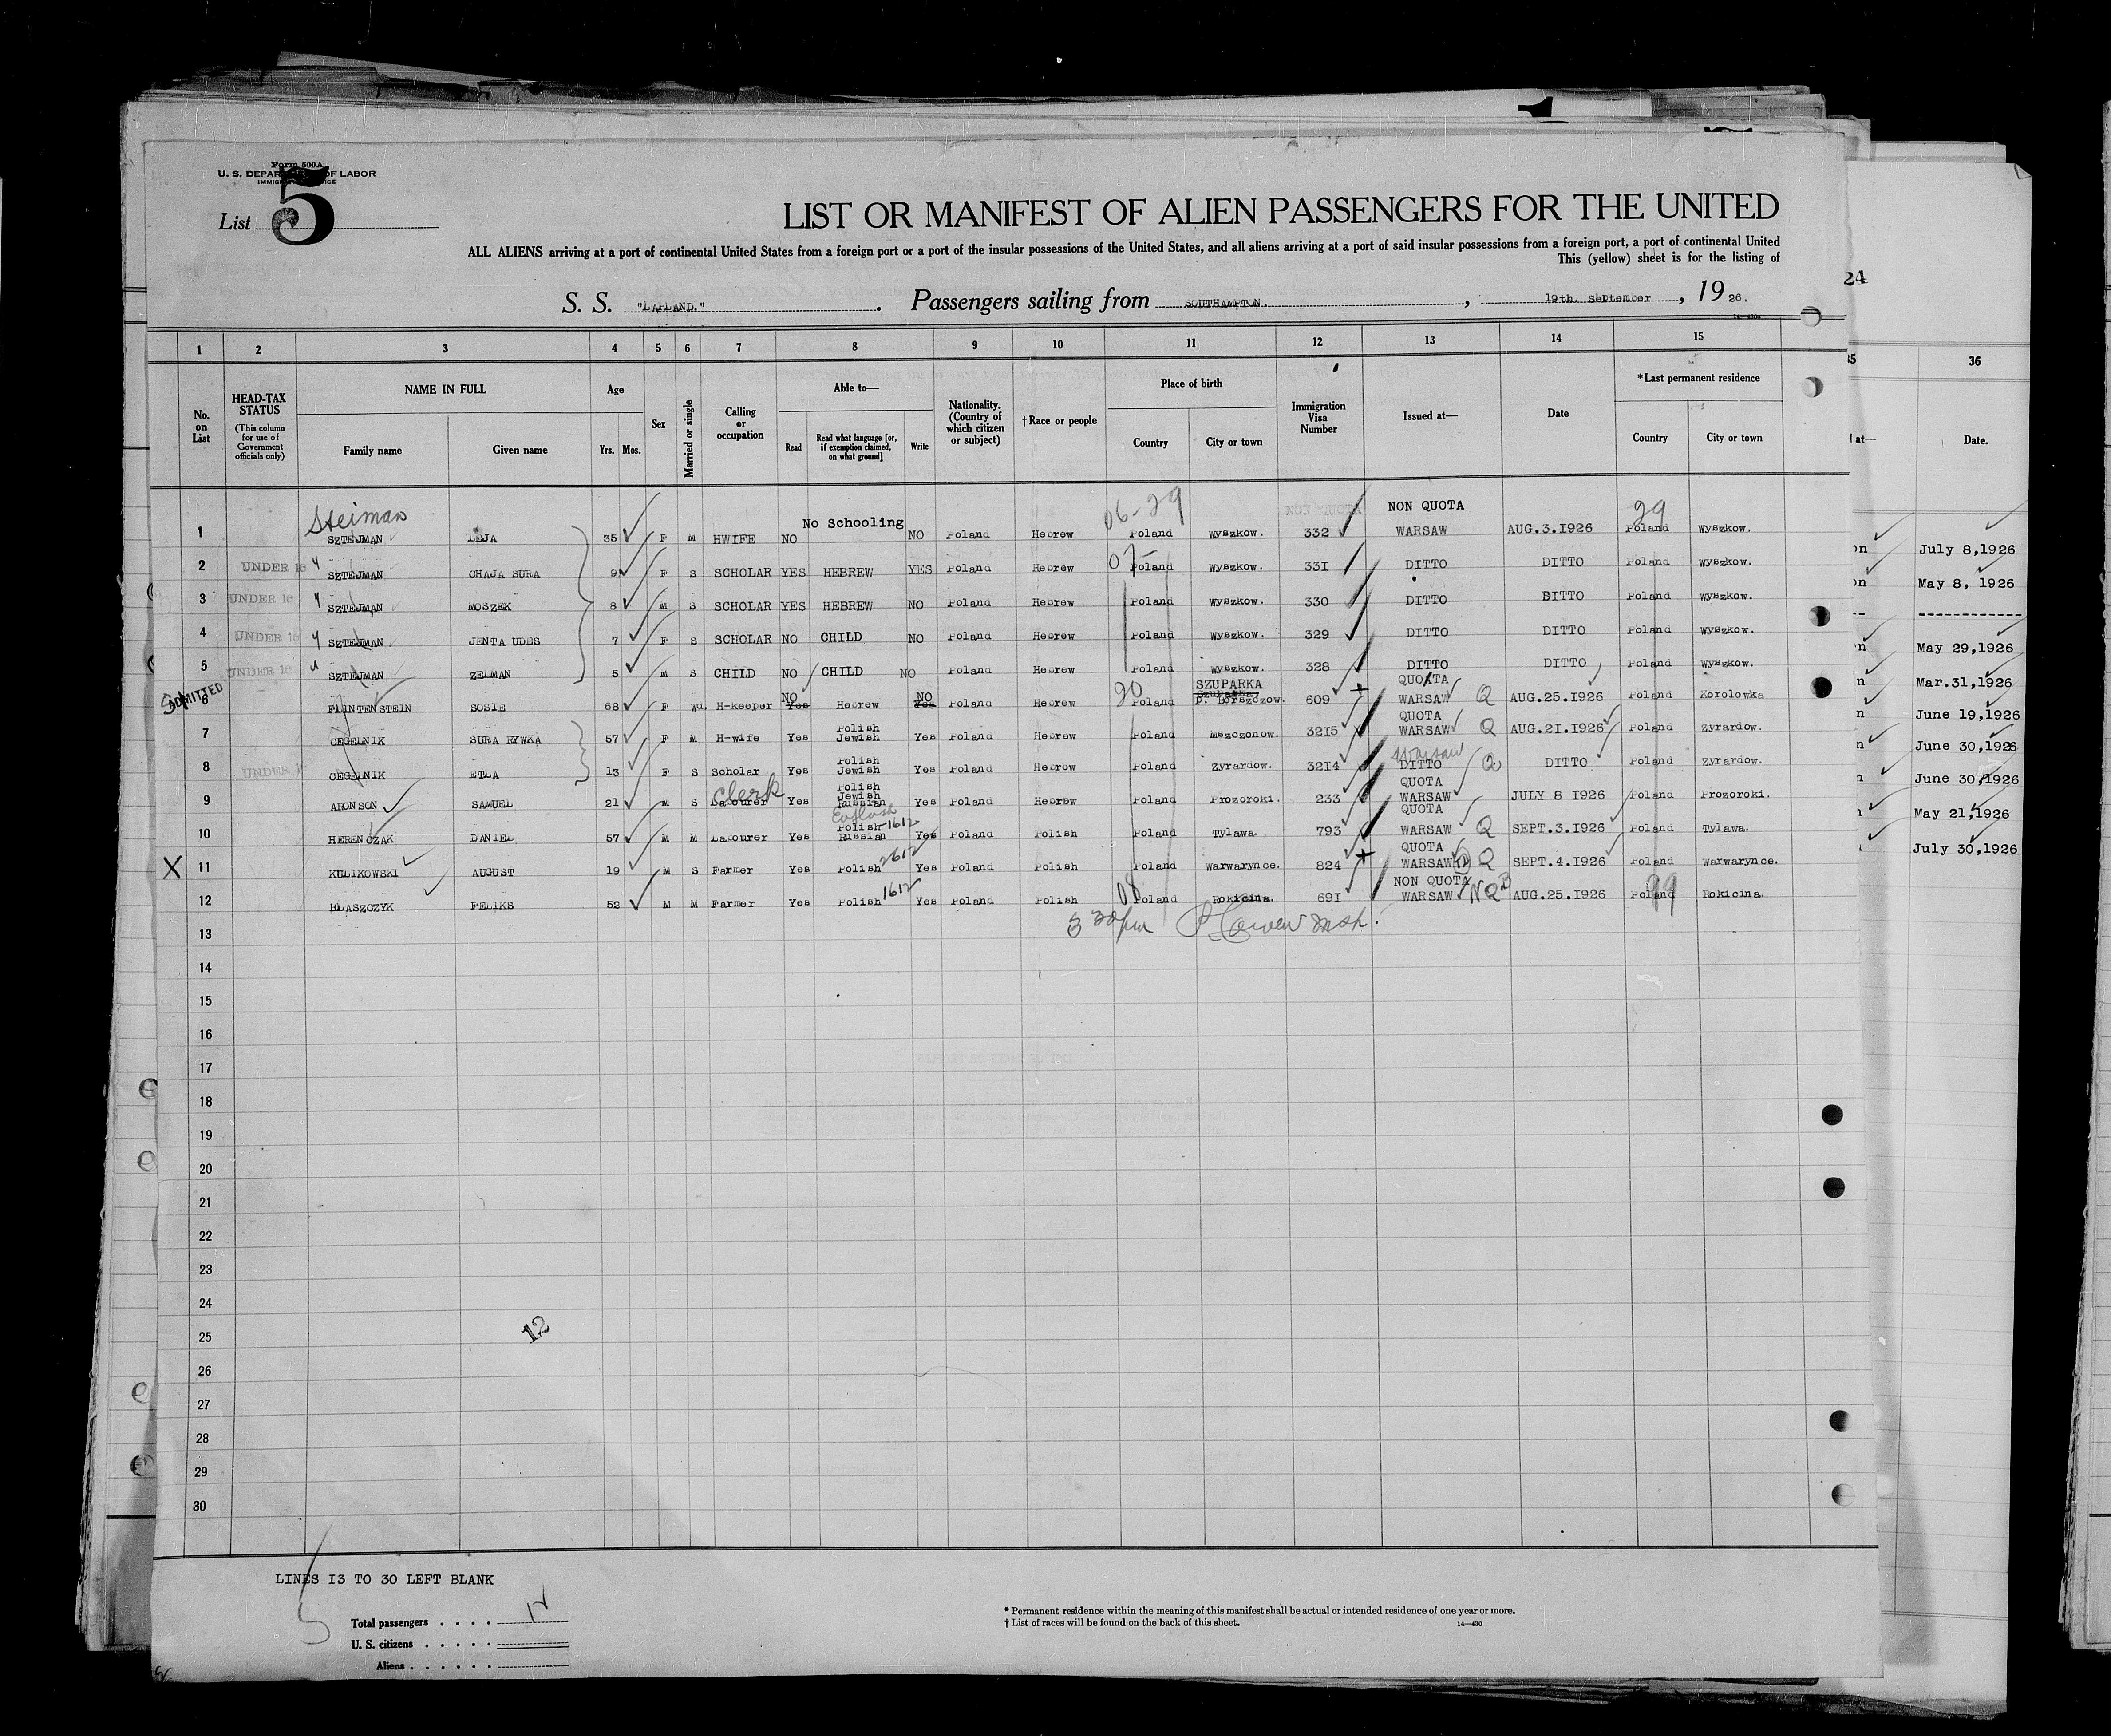 Form 500A
U. S. DEPARTMENT OF LABOR
List 5
LIST OR MANIFEST OF ALIEN PASSENGERS FOR THE UNITED
ALL ALIENS arriving at a port of continental United States from a foreign port or a port of the insular possessions of the United States, and all aliens arriving at a port of said insular possessions from a foreign port, a port of continental United
This (yellow) sheet is for the listing of
S. S. "LAPLAND." Passengers sailing from SOUTHAMPTON. , 19th. September , 19 26.
24
1 2 3 4 5 6 7 8 9 10 11 12 13 14 15
35 36
No. on List
HEAD-TAX STATUS (This column for use of Government officials only)
NAME IN FULL
Family name Given name
Age
Yrs. Mos.
Sex
Married or single
Calling or occupation
Able to—
Read Read what language [or, if exemption claimed, on what ground] Write
Nationality. (Country of which citizen or subject)
†Race or people
Place of birth
Country City or town
Immigration Visa Number
Issued at—
Date
*Last permanent residence
Country City or town
at— Date.
Steiman No Schooling 06-29 NON QUOTA 99
1 SZTEJMAN LEJA 35 F M HWIFE NO NO Poland Hebrew Poland Wyszkow. 332 WARSAW AUG.3.1926 Poland Wyszkow.
2 UNDER 16 SZTEJMAN CHAJA SURA 9 F S SCHOLAR YES HEBREW YES Poland Hebrew 07 Poland Wyszkow. 331 DITTO DITTO Poland Wyszkow.
3 UNDER 16 SZTEJMAN MOSZEK 8 M S SCHOLAR YES HEBREW NO Poland Hebrew Poland Wyszkow. 330 DITTO DITTO Poland Wyszkow.
4 UNDER 16 SZTEJMAN JENTA UDES 7 F S SCHOLAR NO CHILD NO Poland Hebrew Poland Wyszkow. 329 DITTO DITTO Poland Wyszkow.
5 UNDER 16 SZTEJMAN ZELMAN 5 M S CHILD NO CHILD NO Poland Hebrew Poland Wyszkow. 328 DITTO DITTO Poland Wyszkow.
ADMITTED NO NO SZUPARKA QUOTA
6 FLINTENSTEIN SOSIE 68 F Wd. H-keeper Yes Hebrew Yes Poland Hebrew 90 Poland p. Borszczow. 609 WARSAW Q AUG.25.1926 Poland Korolowka
Polish QUOTA
7 CEGELNIK SURA RYWKA 57 F M H-wife Yes Jewish Yes Poland Hebrew Poland Mszczonow. 3215 WARSAW Q AUG.21.1926 Poland Zyrardow.
Polish Warsaw
8 UNDER 1 CEGELNIK ETLA 13 F S Scholar Yes Jewish Yes Poland Hebrew Poland Zyrardow. 3214 DITTO Q DITTO Poland Zyrardow.
Clerk Polish Jewish QUOTA
9 ARONSON SAMUEL 21 M S Labourer Yes Russian Yes Poland Hebrew Poland Prozoroki. 233 WARSAW JULY 8 1926 Poland Prozoroki.
English
Polish 1612 QUOTA
10 HERENCZAK DANIEL 57 M M Labourer Yes Russian Yes Poland Polish Poland Tylawa. 793 WARSAW Q SEPT.3.1926 Poland Tylawa.
2612 QUOTA
X 11 KULIKOWSKI AUGUST 19 M S Farmer Yes Polish Yes Poland Polish Poland Warwarynce. 824 WARSAW Q SEPT.4.1926 Poland Warwarynce.
1612 NON QUOTA
12 BLASZCZYK FELIKS 52 M M Farmer Yes Polish Yes Poland Polish 08 Poland Rokicina. 691 WARSAW NQ AUG.25.1926 Poland 99 Rokicina.
July 8,1926
May 8, 1926
May 29,1926
Mar.31,1926
June 19,1926
June 30,1926
June 30,1926
May 21,1926
July 30,1926
13
14
15
16
17
18
19
20
21
22
23
24
25
12
26
27
28
29
30
LINES 13 TO 30 LEFT BLANK
Total passengers . . . . 12
U. S. citizens . . . . .
Aliens . . . . . .
* Permanent residence within the meaning of this manifest shall be actual or intended residence of one year or more.
† List of races will be found on the back of this sheet.
14—430